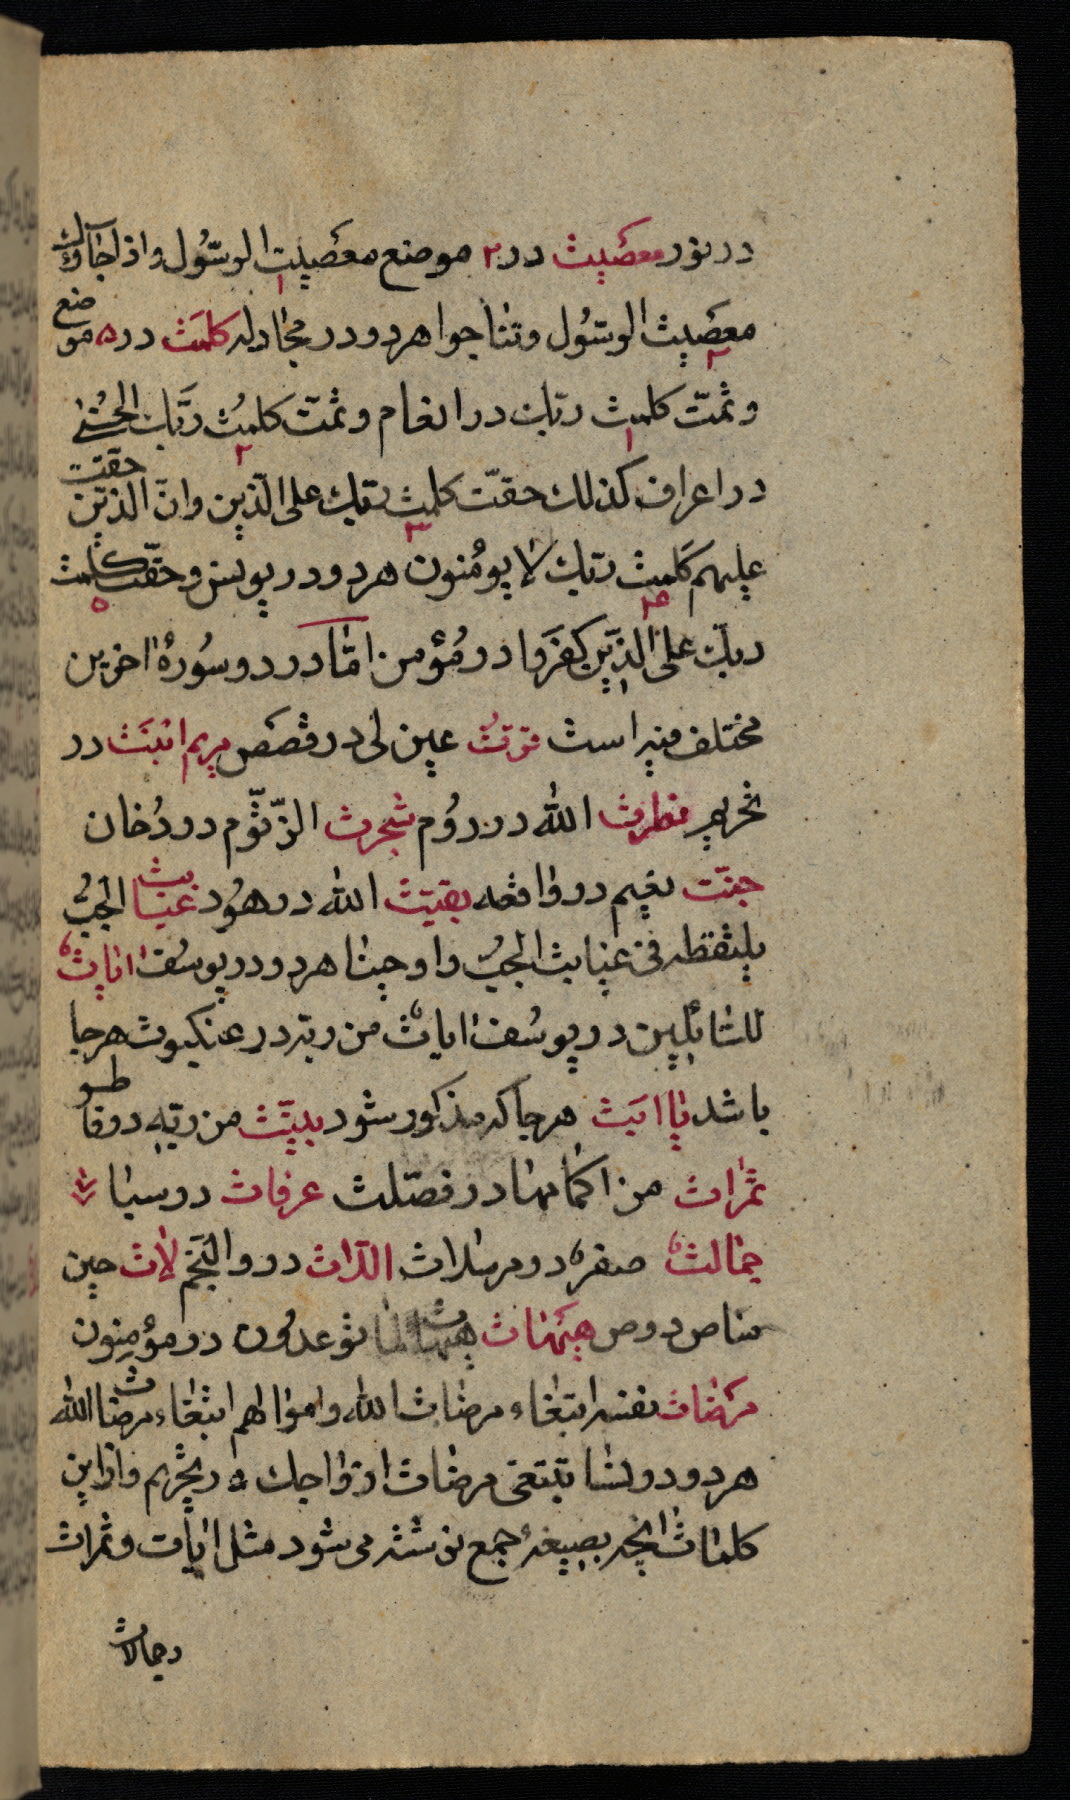 در نور معصیت در ۲ موضع معصیت الرسول و اذا جاؤك
معصیت الرسول و تناجوا هر دو در مجادله کلمت در ۵ موضع
و تمت کلمت ربك در انعام و تمت کلمت ربك الحسنی
در اعراف کذلك حقت کلمت ربك علی الذین و ان الذین حقت
علیهم کلمت ربك لا یومنون هر دو در یونس و حقت کلمت
ربك علی الذین کفروا در مؤمن اما در دو سورهٔ اخرین
مختلف فیه است قرت عین لی در قصص مریم ابنت در
تحریم فطرت الله در روم شجرت الزقوم در دخان
جنت نعیم در واقعه بقیت الله در هود غیابت الجب
یلتقطه فی غیابت الجب و اوحینا هر دو در یوسف ایات
للسائلین در یوسف ایات من ربه در عنکبوت هر جا
باشد یا ابت هر جا که مذکور شود بینت من ربه در فاطر
ثمرات من اکمامها در فصلت غرفات در سبا
جمالت صفر در مرسلات اللات در والنجم لات حین
مناص در ص هیهات هیهات لما توعدون در مؤمنون
مرضات نفسه ابتغاء مرضات الله و اموالهم ابتغاء مرضات الله
هر دو در نسا تبتغی مرضات ازواجك در تحریم و از این
کلمات انچه بصیغهٔ جمع نوشته می شود مثل ایات و ثمرات
و جمالات